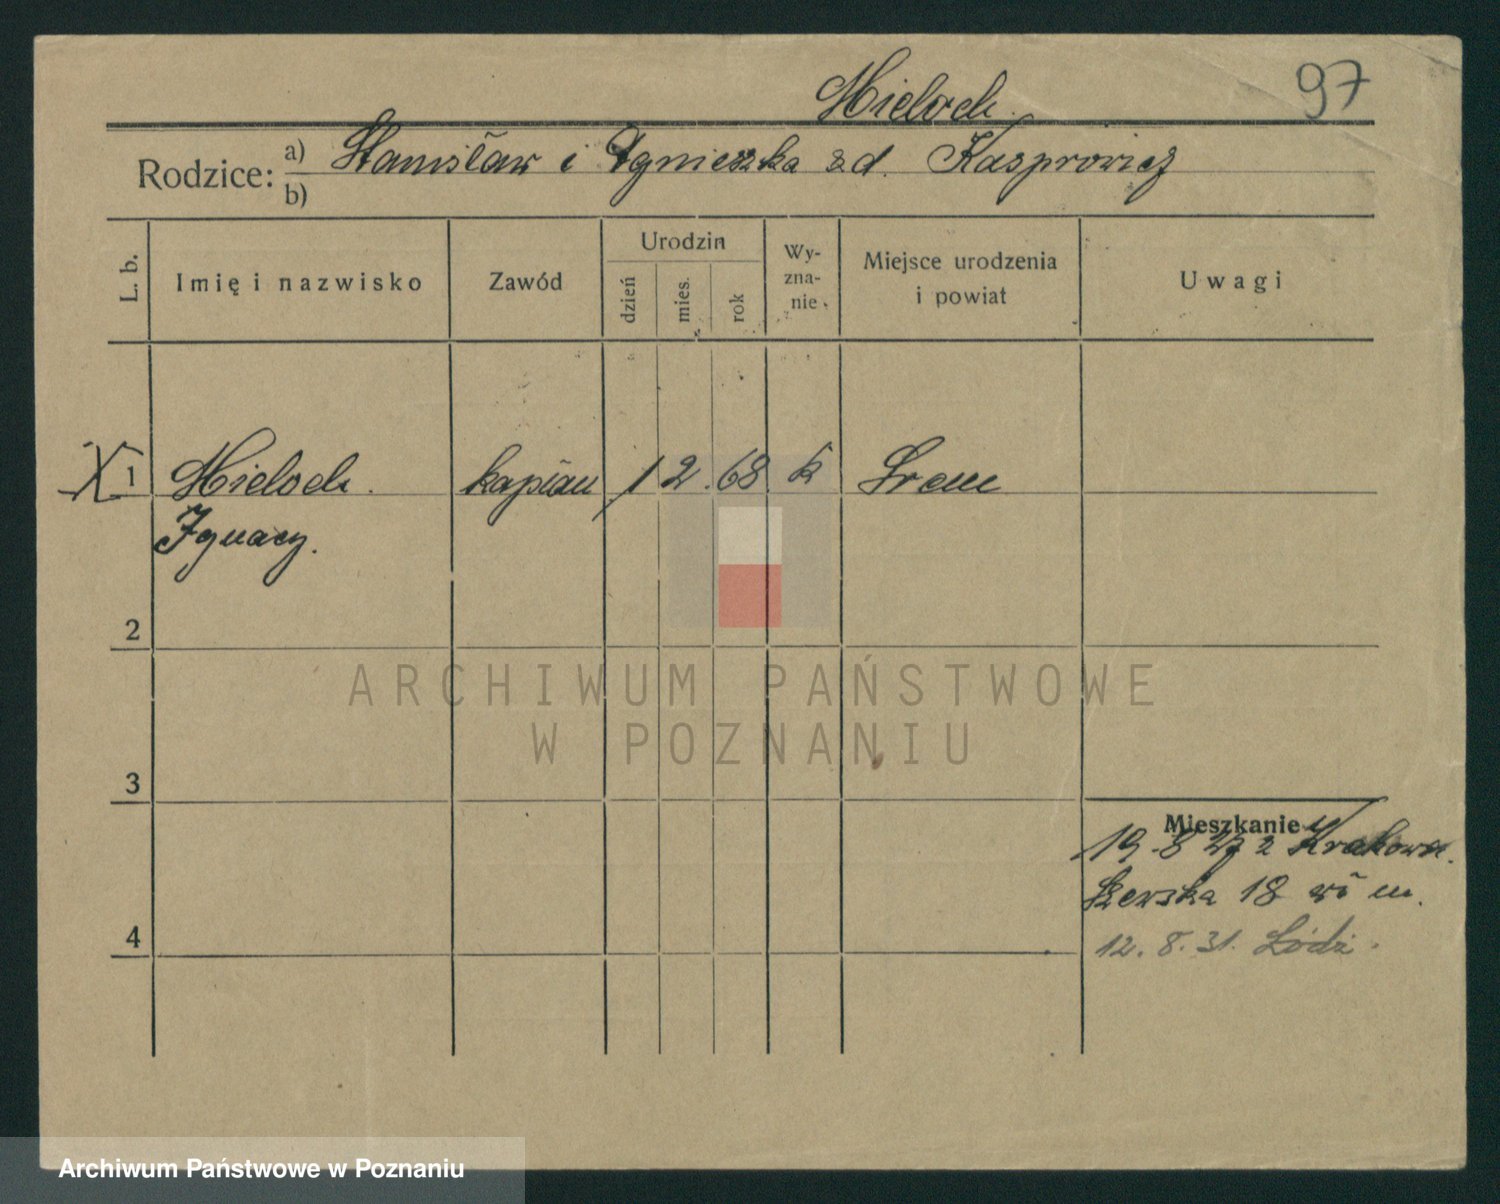 97
Mieloch
Rodzice: a) Stanisław i Agnieszka zd. Kasprowicz
b)
L. b.
Imię i nazwisko
Zawód
Urodzin
dzień
mies.
rok
Wy-
zna-
nie
Miejsce urodzenia
i powiat
Uwagi
1 Mieloch kapłan 1 2 68 k Śrem
Ignacy.
2
ARCHIWUM PAŃSTWOWE
W POZNANIU
3
Mieszkanie
19.8 27 z Krakowa
18 m.
4
12.8.31. Łódź.
Archiwum Państwowe w Poznaniu